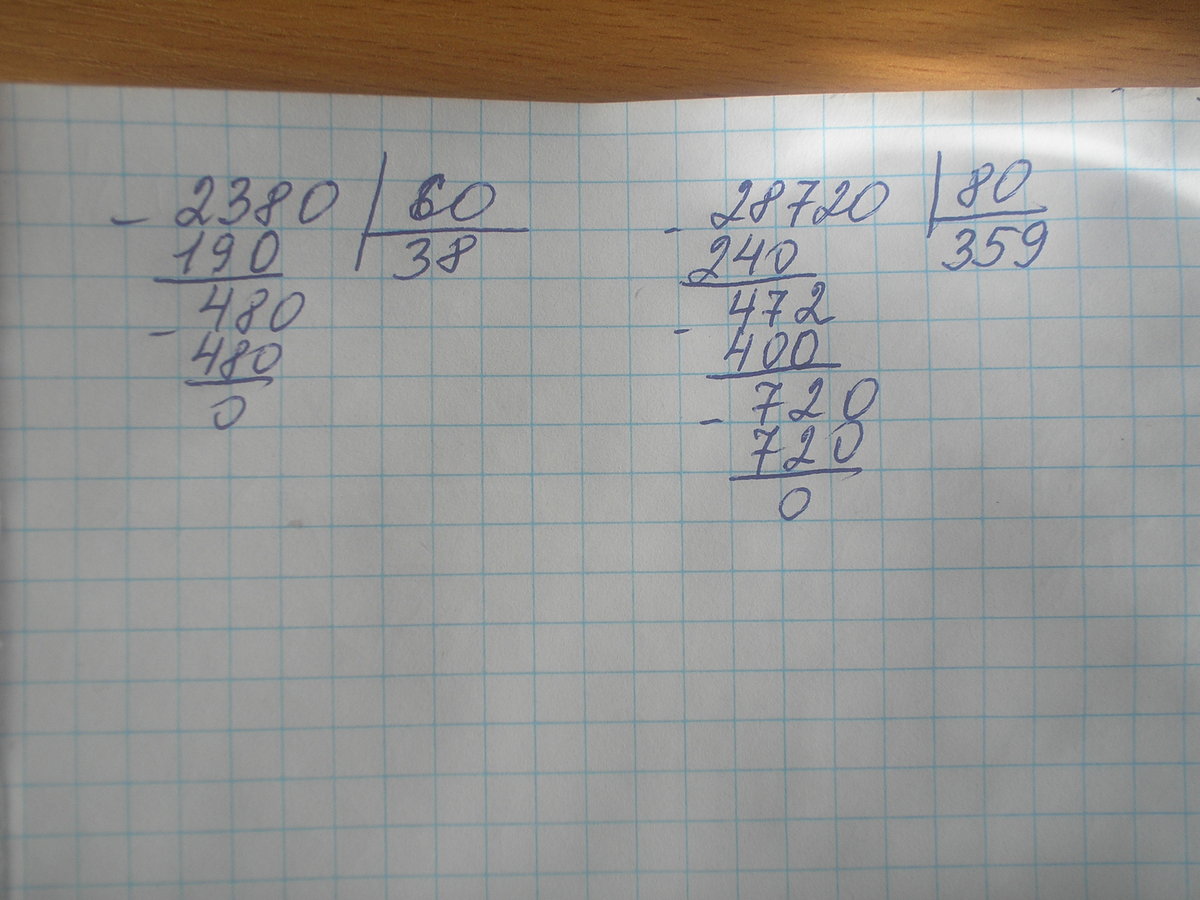 - 2380 | 60
190 38
- 480
480
0
- 28720 | 80
240 359
- 472
400
- 720
720
0